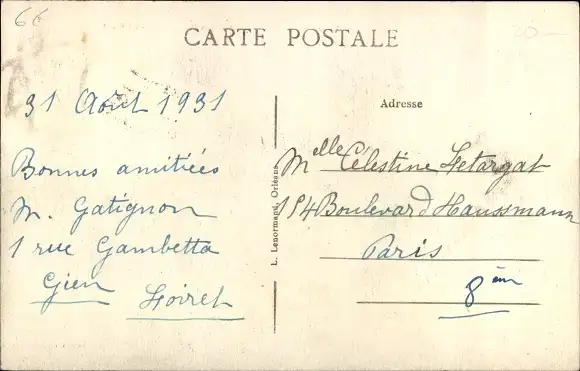 66
20 -
CARTE POSTALE
31 Août 1931
Bonnes amitiées
M. Gatignon
1 rue Gambetta
Gien
Loiret
L. Lenormand, Orléans
Adresse
Melle Célestine Letargat
154 Boulevard Haussmann
Paris
8èm